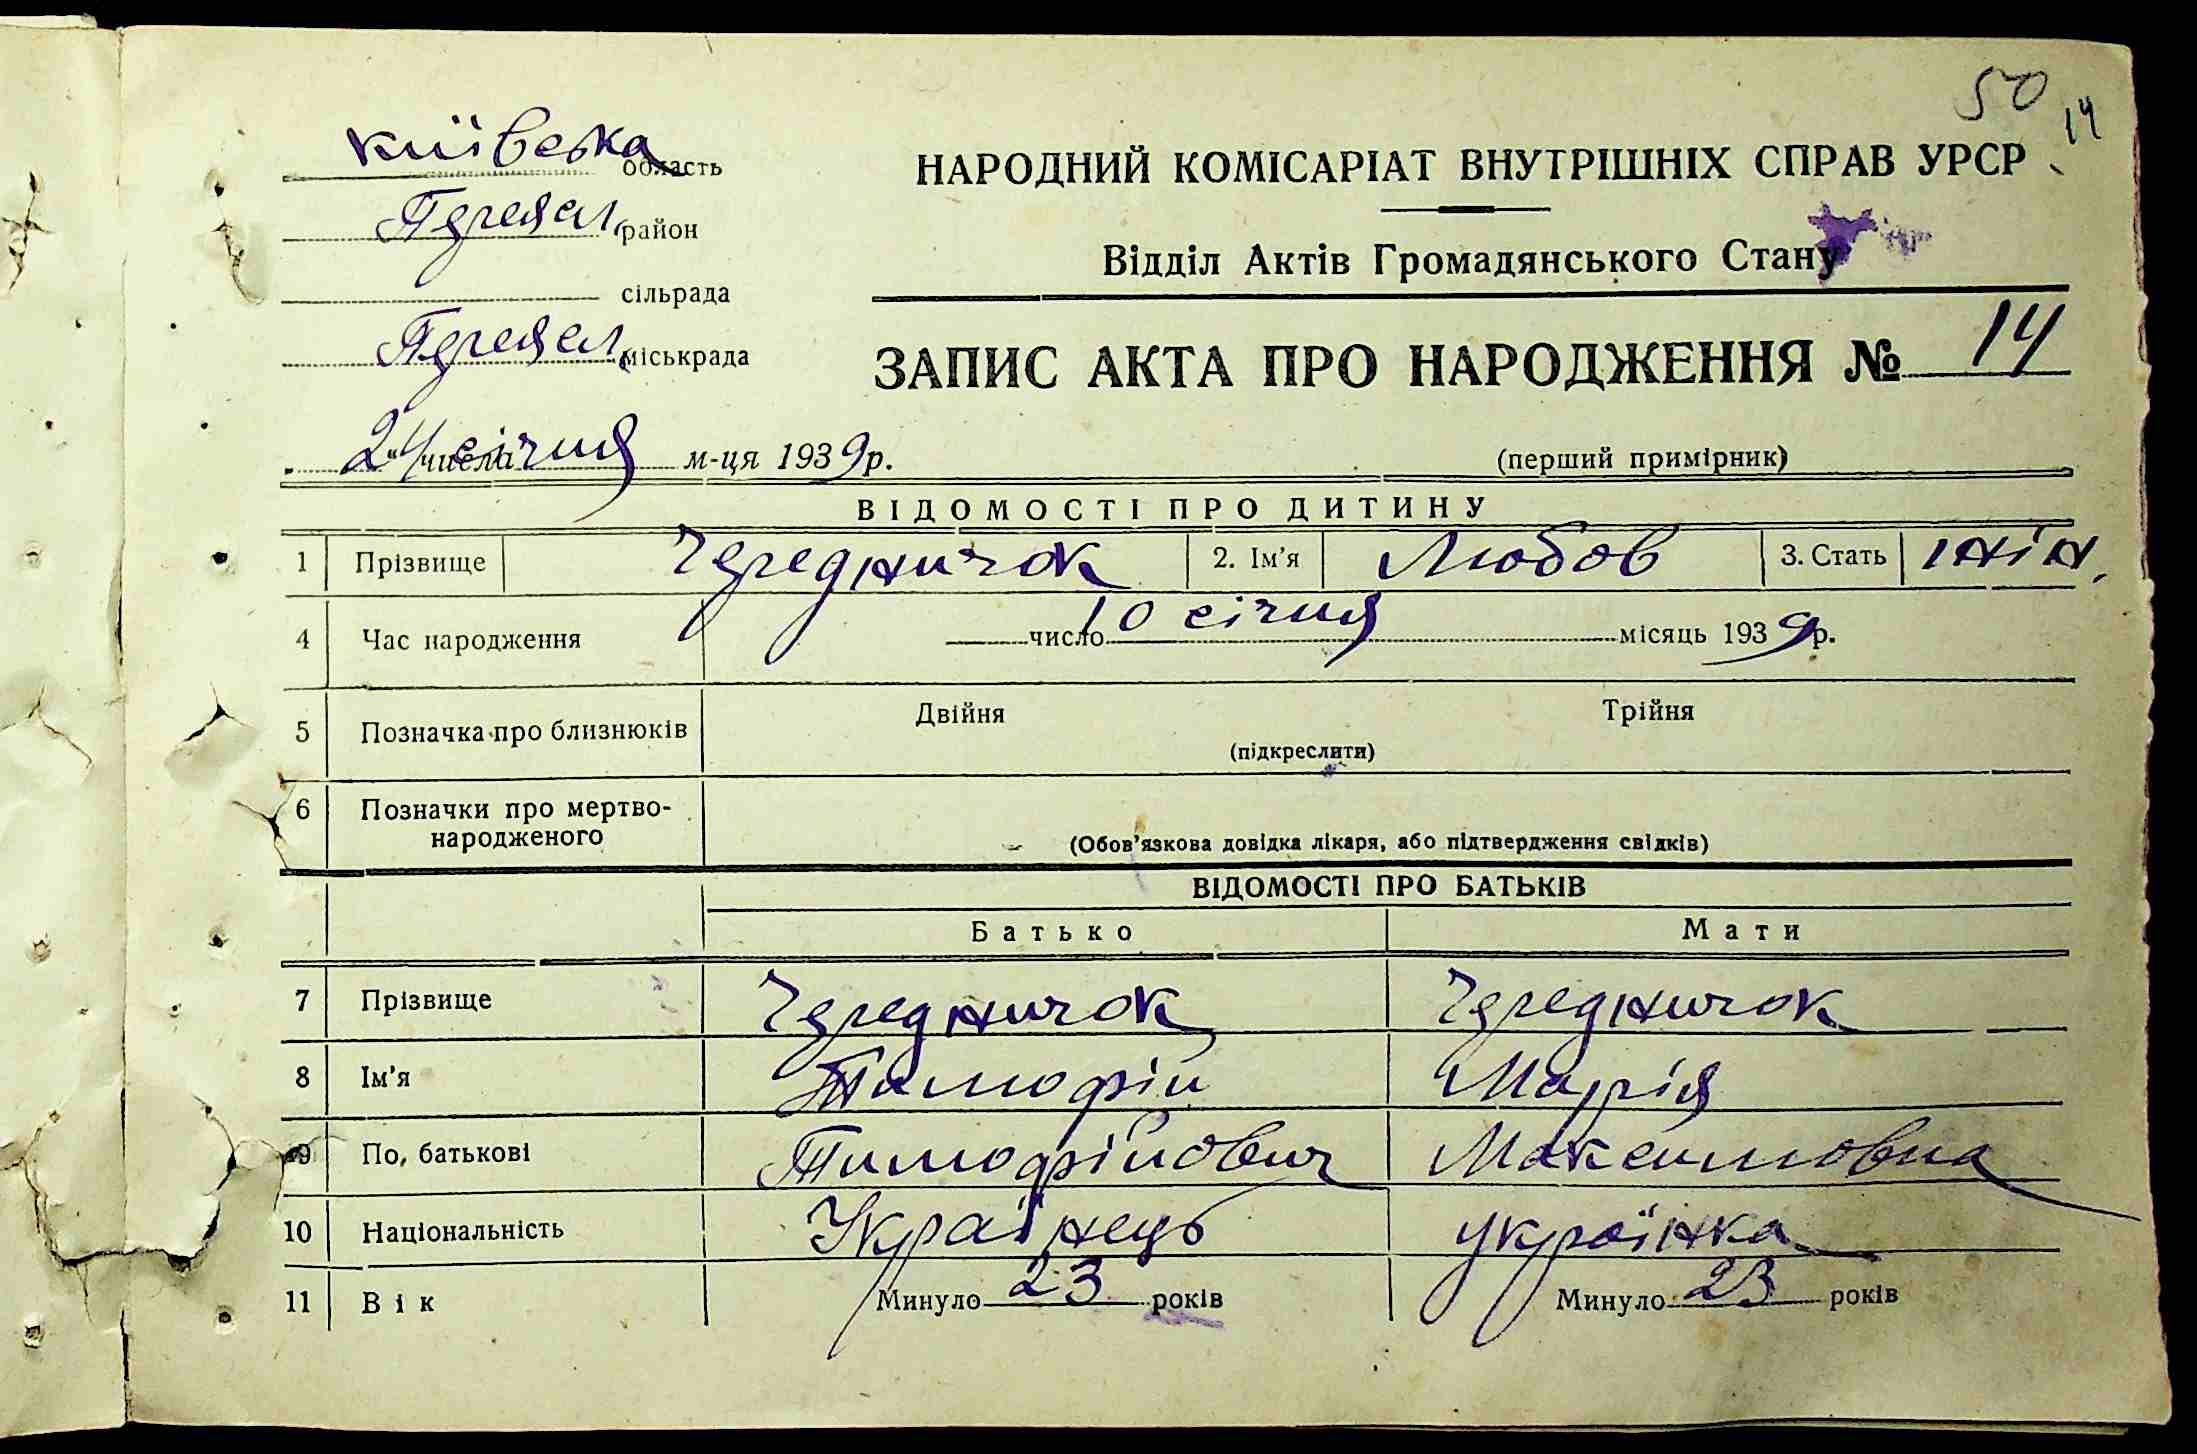 50
14
Київська область
НАРОДНИЙ КОМІСАРІАТ ВНУТРІШНІХ СПРАВ УРСР
Переясл. район
Відділ Актів Громадянського Стану
сільрада
Переясл. міськрада
ЗАПИС АКТА ПРО НАРОДЖЕННЯ № 14
"24" числа січня м-ця 1939 р.
(перший примірник)
ВІДОМОСТІ ПРО ДИТИНУ
1 Прізвище Чередничок 2. Ім'я Любов 3. Стать жін.
4 Час народження число 10 січня місяць 1939 р.
5 Позначка про близнюків Двійня Трійня
(підкреслити)
6 Позначки про мертво-
народженого
(Обов'язкова довідка лікаря, або підтвердження свідків)
ВІДОМОСТІ ПРО БАТЬКІВ
Батько Мати
7 Прізвище Чередничок Чередничок
8 Ім'я Тимофій Марія
9 По, батькові Тимофійович Максимовна
10 Національність Українець українка
11 Вік Минуло 23 років Минуло 23 років